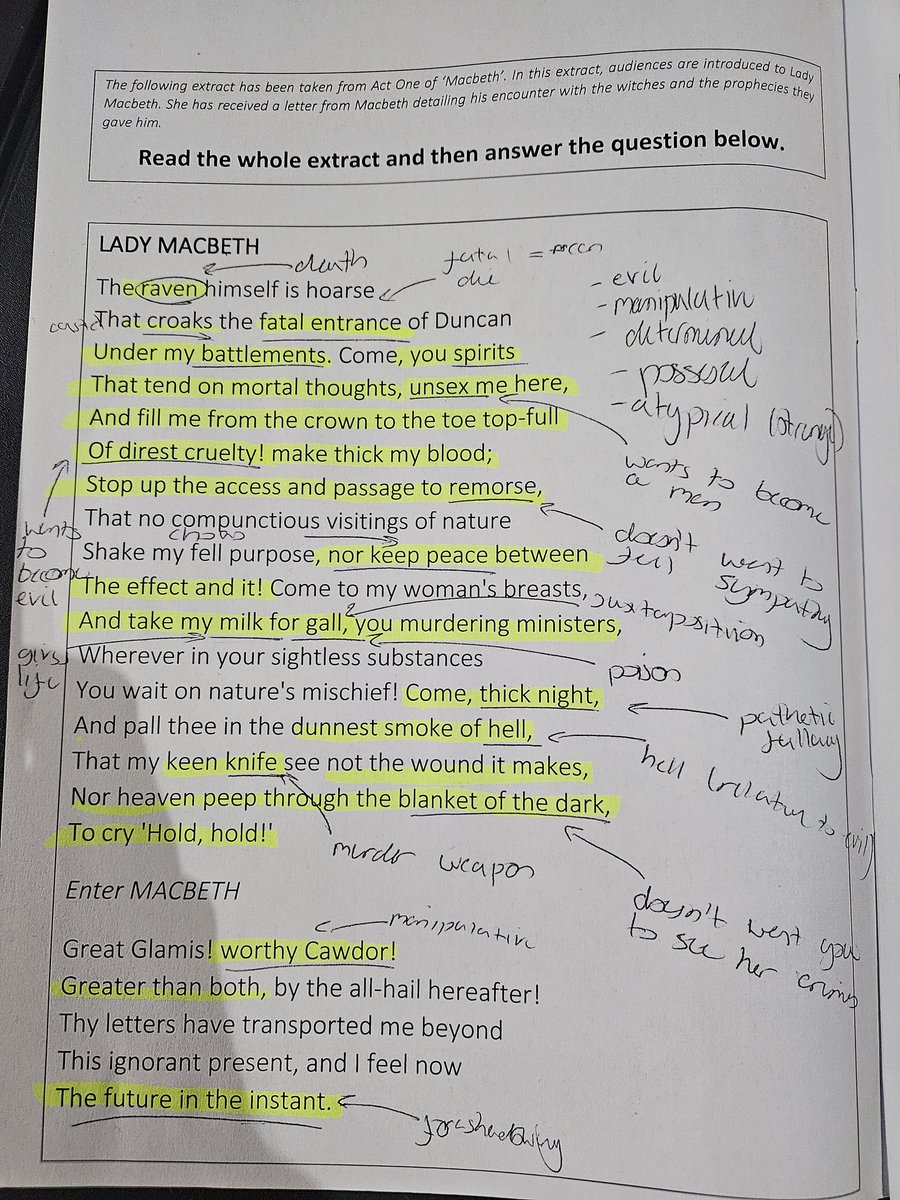 The following extract has been taken from Act One of ‘Macbeth’. In this extract, audiences are introduced to Lady
Macbeth. She has received a letter from Macbeth detailing his encounter with the witches and the prophecies they
gave him.
Read the whole extract and then answer the question below.
LADY MACBETH
death
fatal =
die
The raven himself is hoarse
That croaks the fatal entrance of Duncan
Under my battlements. Come, you spirits
That tend on mortal thoughts, unsex me here,
And fill me from the crown to the toe top-full
Of direst cruelty! make thick my blood;
Stop up the access and passage to remorse,
That no compunctious visitings of nature
chaos
Shake my fell purpose, nor keep peace between
The effect and it! Come to my woman's breasts,
And take my milk for gall, you murdering ministers,
Wherever in your sightless substances
You wait on nature's mischief! Come, thick night,
And pall thee in the dunnest smoke of hell,
That my keen knife see not the wound it makes,
Nor heaven peep through the blanket of the dark,
To cry 'Hold, hold!'
- evil
- manipulative
- determined
- possessed
- atypical (strange)
wants to become
a man
doesn't want to
feel sympathy
juxtaposition
poison
pathetic
fallacy
hell (relating to evil)
murder weapon
doesn't want you
to see her crimes
wants
to
become
evil
gives
life
Enter MACBETH
manipulative
Great Glamis! worthy Cawdor!
Greater than both, by the all-hail hereafter!
Thy letters have transported me beyond
This ignorant present, and I feel now
The future in the instant.
foreshadowing